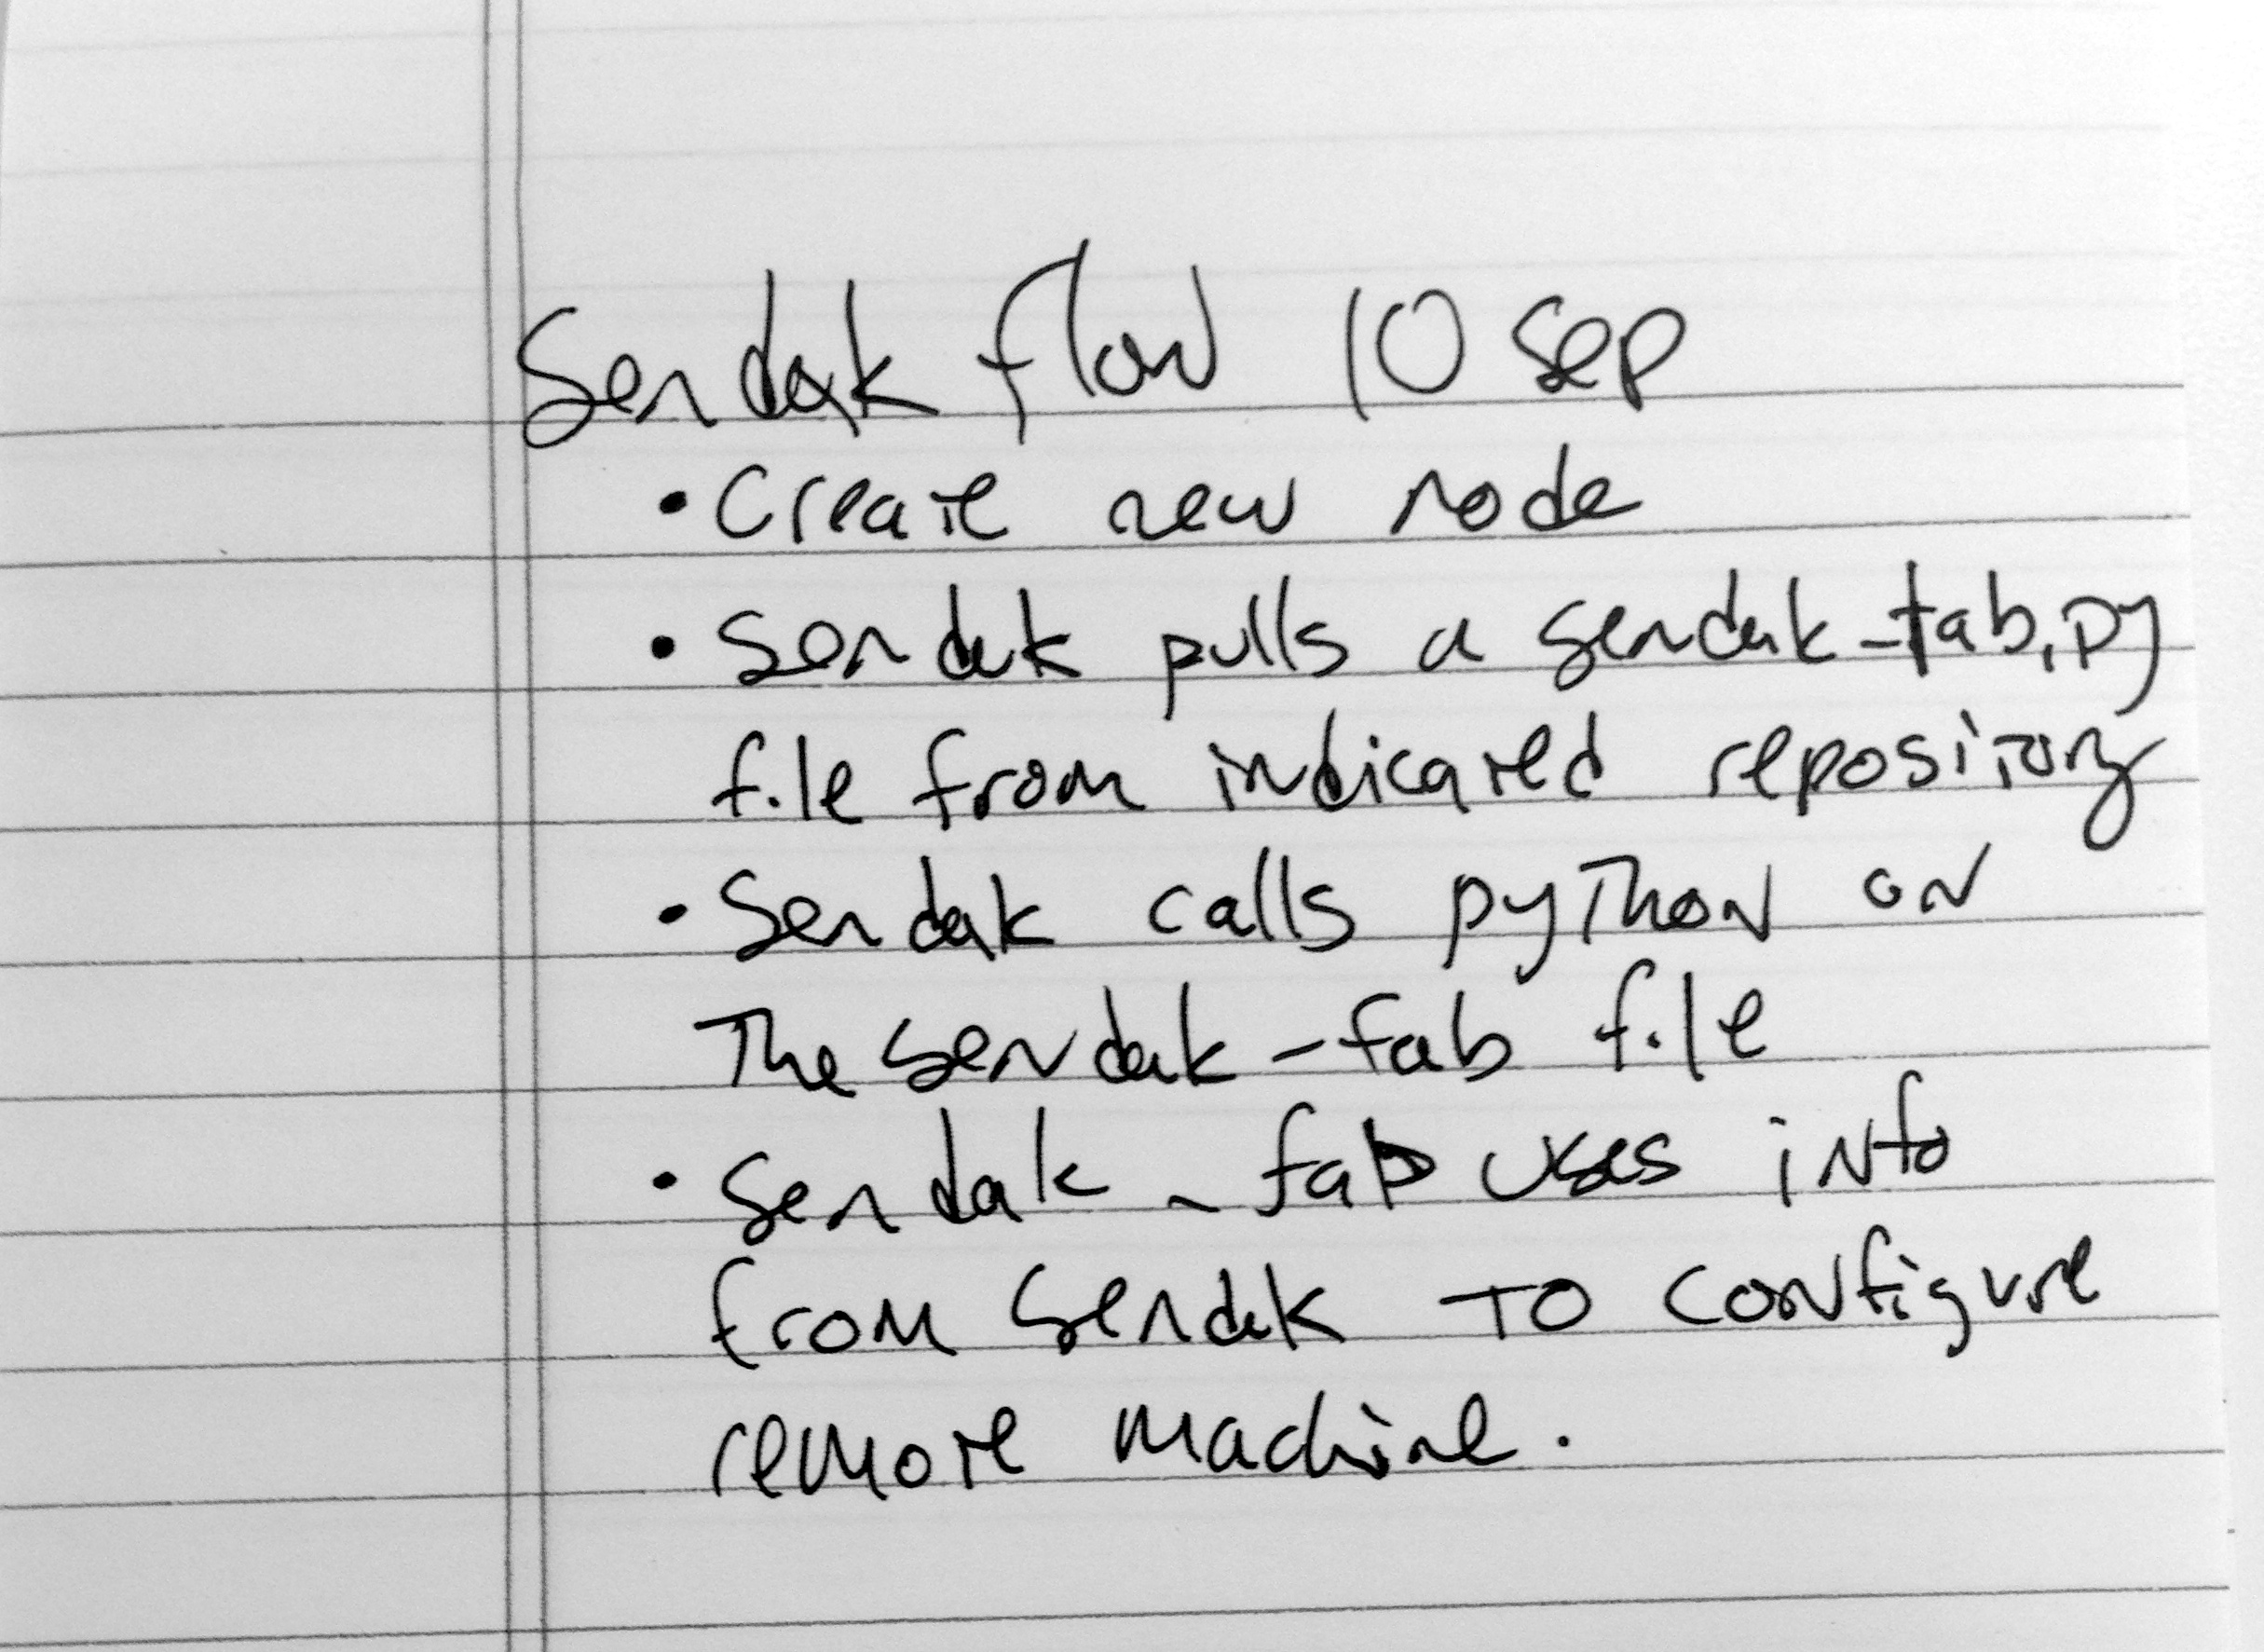 Sendak flow 10 Sep
• Create new node
• Sendak pulls a sendak-fab.py
file from indicated repository
• Sendak calls python on
The sendak-fab file
• Sendak-fab uses info
from Sendak to configure
remote machine.